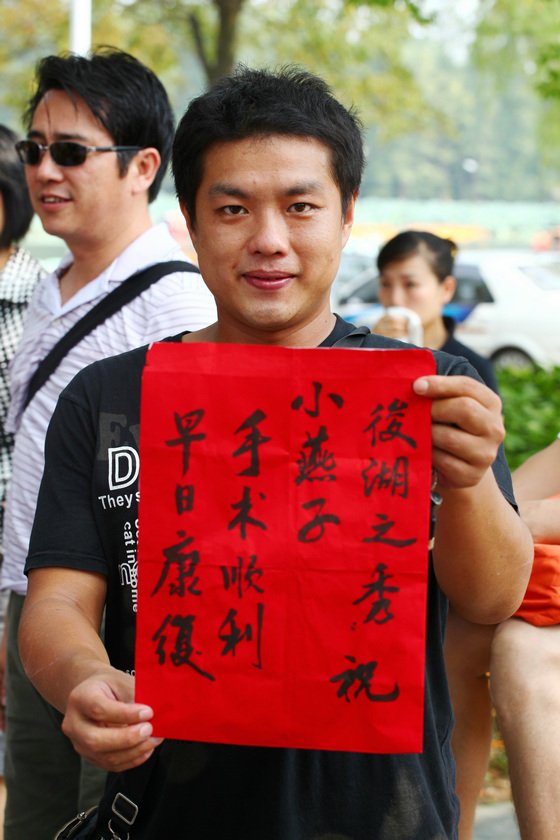 後湖之秀 祝
小燕子
手术顺利
早日康復
D
Theys